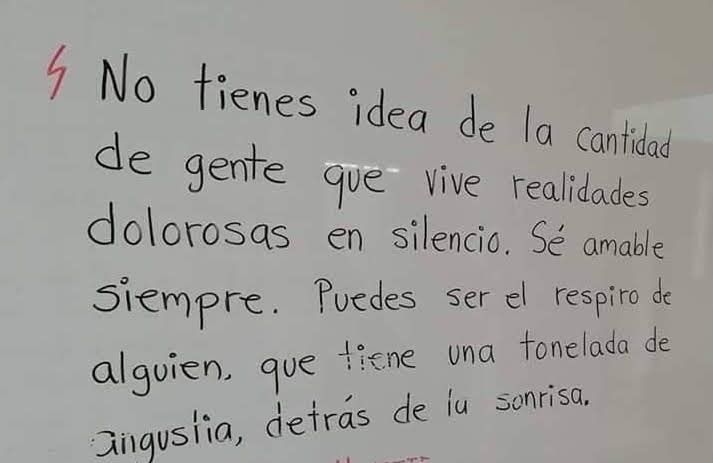 No tienes idea de la cantidad
de gente que vive realidades
dolorosas en silencio. Sé amable
siempre. Puedes ser el respiro de
alguien, que tiene una tonelada de
angustia, detrás de la sonrisa.